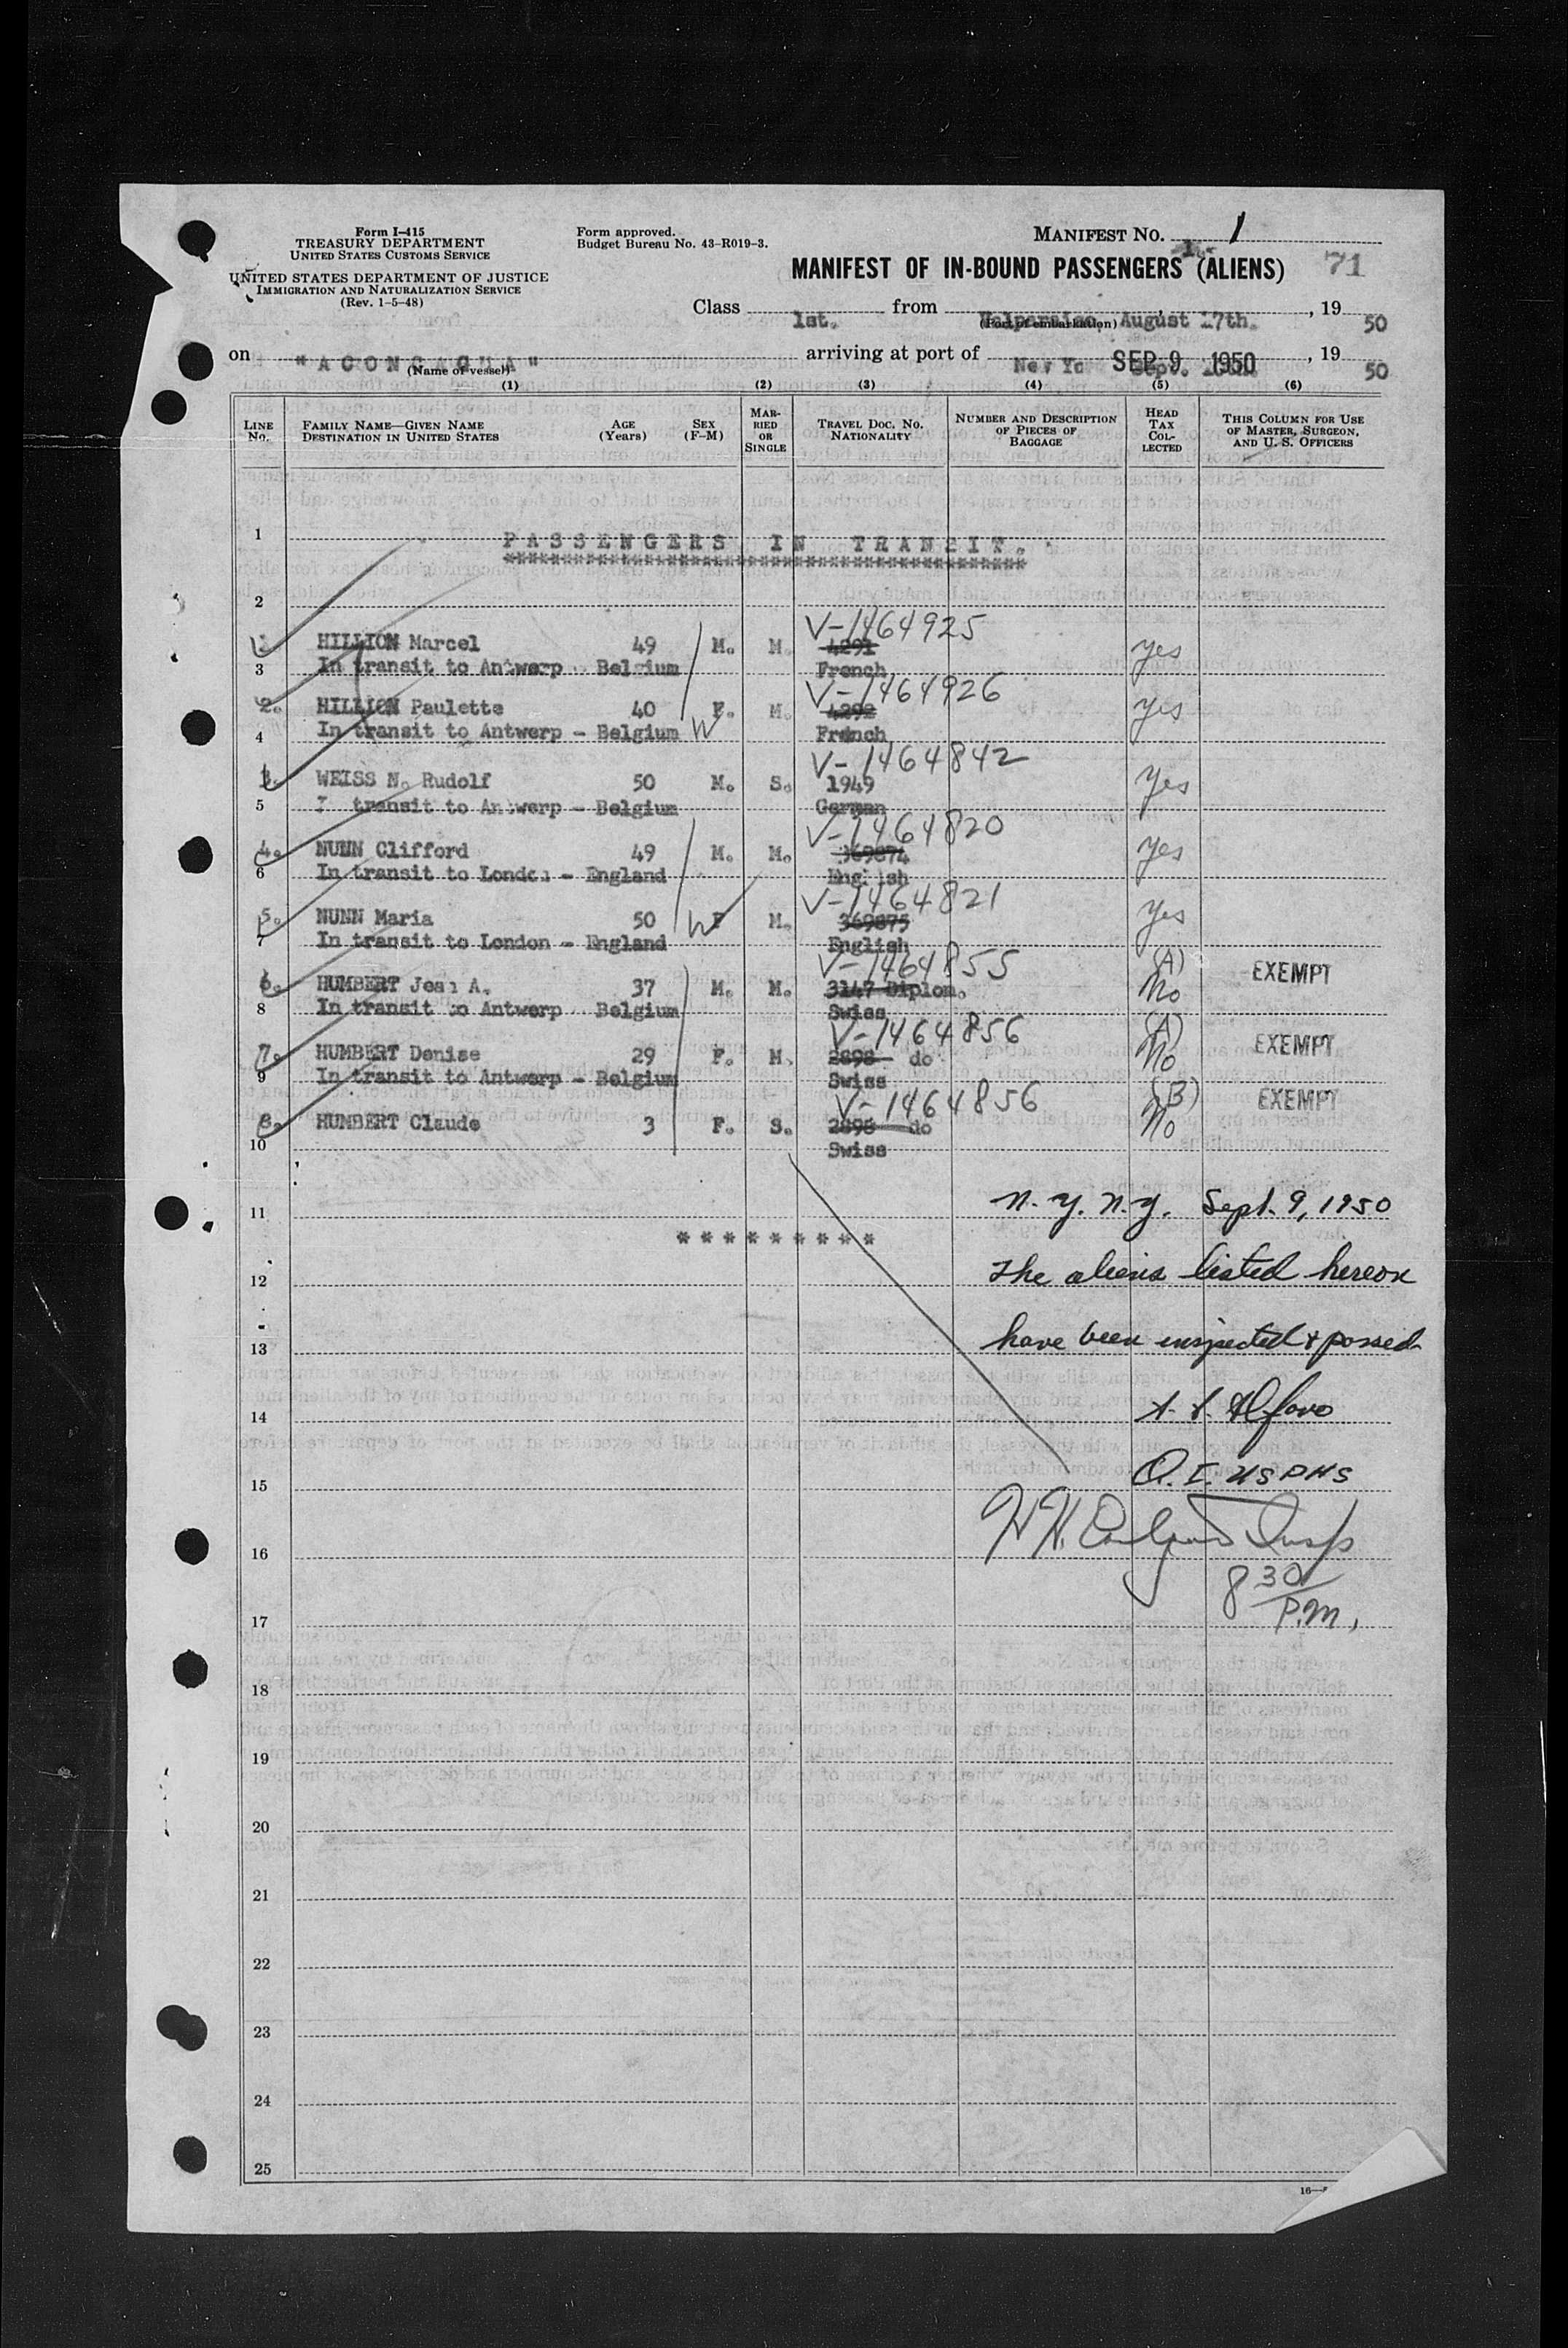 Form I-415
TREASURY DEPARTMENT
UNITED STATES CUSTOMS SERVICE
UNITED STATES DEPARTMENT OF JUSTICE
IMMIGRATION AND NATURALIZATION SERVICE
(Rev. 1-5-48)
Form approved.
Budget Bureau No. 43-R019-3.
MANIFEST NO. 1
MANIFEST OF IN-BOUND PASSENGERS (ALIENS) 71
Class 1st. from Valparaiso, August 17th. , 19 50
(Port of embarkation)
on "ACONCAGUA" arriving at port of New Yo SEP 9 1950 , 19 50
(Name of vessel)
(1) (2) (3) (4) (5) (6)
LINE No. FAMILY NAME—GIVEN NAME DESTINATION IN UNITED STATES AGE (Years) SEX (F-M) MARRIED OR SINGLE TRAVEL DOC. NO. NATIONALITY NUMBER AND DESCRIPTION OF PIECES OF BAGGAGE HEAD TAX COLLECTED THIS COLUMN FOR USE OF MASTER, SURGEON, AND U. S. OFFICERS
1 PASSENGERS IN TRANSIT.
2
V-1464925
HILLION Marcel 49 M. M. 4291 yes
3 In transit to Antwerp Belgium French
V-1464926
2. HILLION Paulette 40 F. M. 4292 yes
4 In transit to Antwerp - Belgium W French
V-1464842
3. WEISS N. Rudolf 50 M. S. 1949 yes
5 transit to Antwerp - Belgium German
V-1464820
4. NUNN Clifford 49 M. M. 369874 yes
6 In transit to London - England English
V-1464821
5. NUNN Maria 50 W F M. 369875 yes
7 In transit to London - England English
V-1464855 (A) EXEMPT
6. HUMBERT Jean A. 37 M. M. 3147 Diplom. No
8 In transit to Antwerp Belgium Swiss
V-1464856 (A) EXEMPT
7. HUMBERT Denise 29 F. M. 2898 do No
9 In transit to Antwerp - Belgium Swiss
V-1464856 (B) EXEMPT
8. HUMBERT Claude 3 F. S. 2898 do No
10 Swiss
11 N. Y. N. Y. Sept. 9, 1950
* * * * * * * * *
12 The aliens listed hereon
13 have been inspected & passed
14
15 Q. I. USPHS
16 Insp
8 30 P.M.
17
18
19
20
21
22
23
24
25